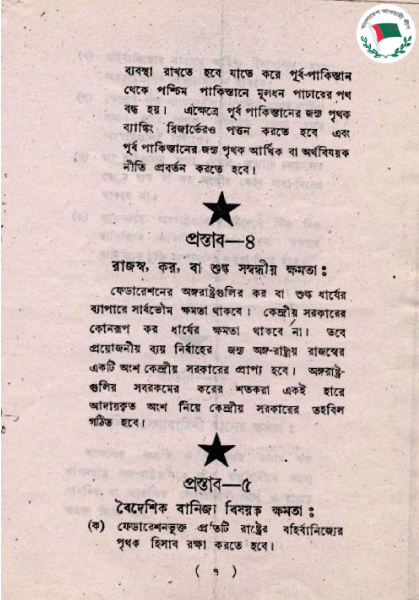 বাংলাদেশ আওয়ামী লীগ
ব্যবস্থা রাখতে হবে যাতে করে পূর্ব-পাকিস্তান
থেকে পশ্চিম পাকিস্তানে মূলধন পাচারের পথ
বন্ধ হয়। এক্ষেত্রে পূর্ব পাকিস্তানের জন্য পৃথক
ব্যাঙ্কিং রিজার্ভেরও পত্তন করতে হবে এবং
পূর্ব পাকিস্তানের জন্য পৃথক আর্থিক বা অর্থবিষয়ক
নীতি প্রবর্তন করতে হবে।
প্রস্তাব—৪
রাজস্ব, কর, বা শুল্ক সম্বন্ধীয় ক্ষমতা:
ফেডারেশনের অঙ্গরাষ্ট্রগুলির কর বা শুল্ক ধার্যের
ব্যাপারে সার্বভৌম ক্ষমতা থাকবে। কেন্দ্রীয় সরকারের
কোনরূপ কর ধার্যের ক্ষমতা থাকবে না। তবে
প্রয়োজনীয় ব্যয় নির্বাহের জন্য অঙ্গ-রাষ্ট্রীয় রাজস্বের
একটি অংশ কেন্দ্রীয় সরকারের প্রাপ্য হবে। অঙ্গরাষ্ট্র-
গুলির সবরকমের করের শতকরা একই হারে
আদায়কৃত অংশ নিয়ে কেন্দ্রীয় সরকারের তহবিল
গঠিত হবে।
প্রস্তাব—৫
বৈদেশিক বানিজ্য বিষয়ক ক্ষমতা:
(ক) ফেডারেশনভুক্ত প্রতিটি রাষ্ট্রের বহির্বানিজ্যের
পৃথক হিসাব রক্ষা করতে হবে।
( ৭ )